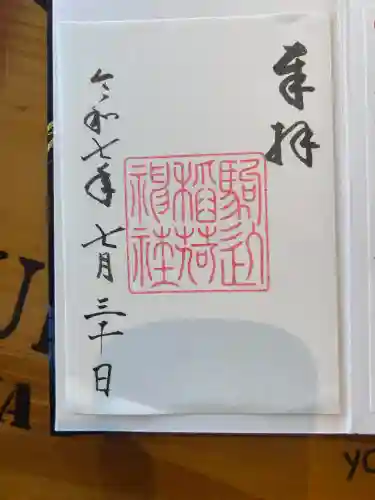 奉拝
駒込
稲荷
神社
令和七年 七月三十日